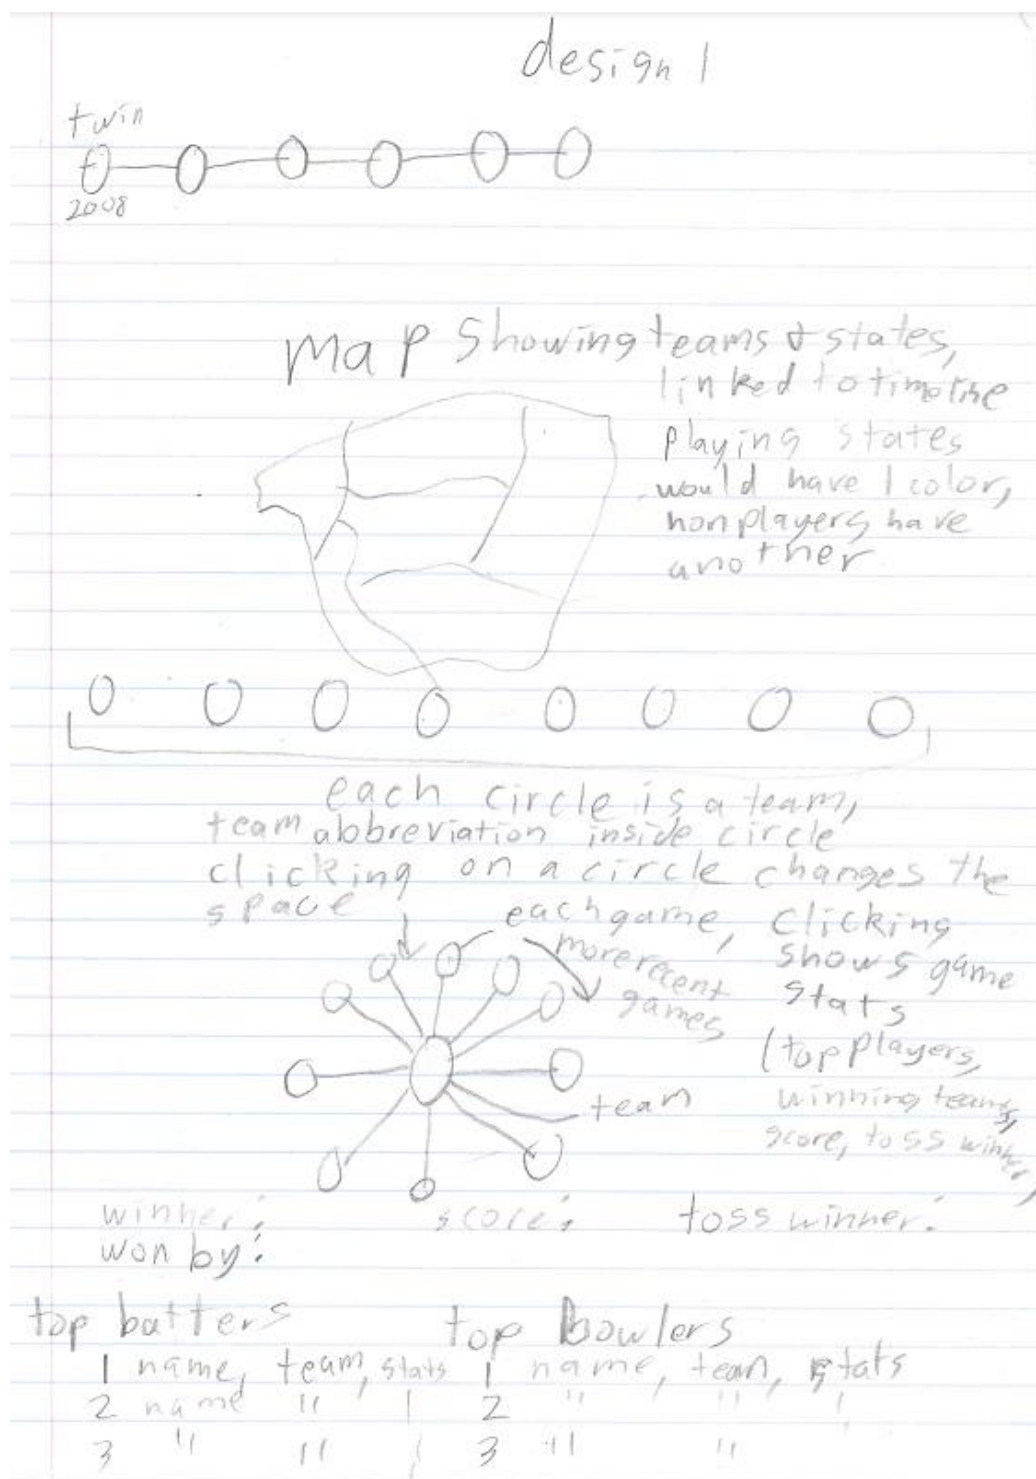 design 1
twin
2008
map showing teams & states,
linked to timeline
playing states
would have 1 color,
nonplayers have
another
each circle is a team,
team abbreviation inside circle
clicking on a circle changes the
space
each game, clicking
more recent
games
shows game
stats
(top players,
winning teams,
score, toss winner)
team
winner: score: toss winner:
won by:
top batters top bowlers
1 name, team, stats 1 name, team, stats
2 name " | 2 " " |
3 " " | 3 " "